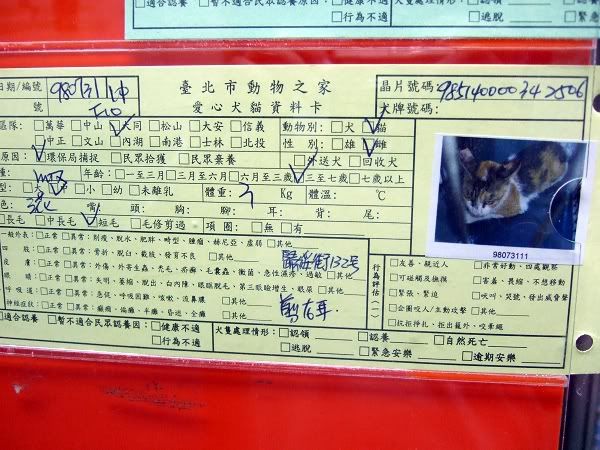 適合認養 □暫不適合民眾認養原因: □健康不適
□行為不適
犬隻處理情形: □認領
□逃脫 □緊急
日期/編號 980731
號 F10
臺北市動物之家
愛心犬貓資料卡
晶片號碼: 985140000342506
犬牌號碼:
區隊: □萬華 □中山 ☑大同 □松山 □大安 □信義
□中正 □文山 □內湖 □南港 □士林 □北投
動物別: □犬 ☑貓
性 別: □雄 ☑雌
原因: ☑環保局捕捉 □民眾拾獲 □民眾棄養 □外送犬 □回收犬
種: mix 年齡: □一至三月 □三月至六月 □六月至三歲 ☑三至七歲 □七歲以上
型: □大 □中 □小 □幼 □未離乳 體重: 3 Kg 體溫: ℃
色: 三花 嘴: 頭: 胸: 腳: 耳: 背: 尾:
□長毛 □中長毛 ☑短毛 □毛修剪過 項 圈: □無 □有
98073111
一般外表: □正常 □異常: 削瘦、脫水、肥胖、畸型、腫瘤、赫尼亞、虛弱 □其他
四 肢: □正常 □異常: 骨折、脫臼、截肢、發育不良 □其他
皮 膚: □正常 □異常: 外傷、外寄生蟲、禿毛、疥癬、毛囊蟲、黴菌、急性濕疹、過敏 □其他
眼 □正常 □異常: 失明、萎縮、脫出、白內障、眼瞼脫毛、第三眼瞼增生、眼屎 □其他
呼 吸 道: □正常 □異常: 急促、呼吸困難、咳嗽、流鼻膿 □其他
神經症狀: □正常 □異常: 癲癇、偏癱、半癱、昏迷、全癱 □其他
歸綏街132號
剪左耳.
行為評估(一)
□友善、親近人 □非常好動、四處觀察
□可碰觸及撫摸 □害羞、畏縮、不想移動
□緊張、緊迫 □吠叫、哭號、發出威脅聲
□企圖咬人/主動攻擊 □其他
□抗拒掙扎、拒出籠外、咬牽繩
□適合認養 □暫不適合民眾認養原因: □健康不適
□行為不適
犬隻處理情形: □認領 □認養 □自然死亡
□逃脫 □緊急安樂 □逾期安樂